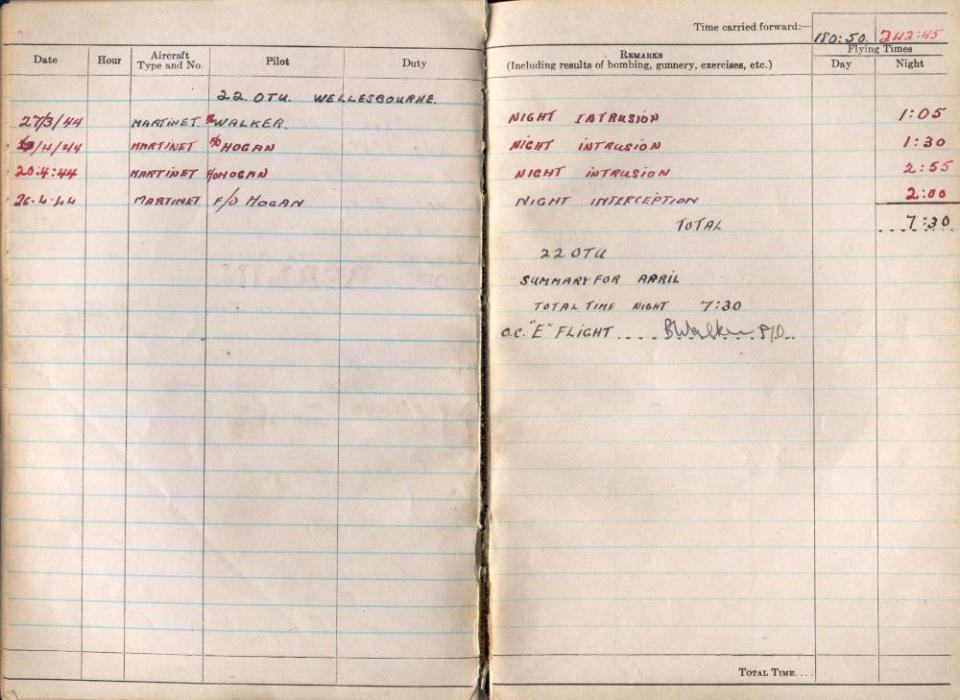 Time carried forward:— 180:50 242:45
Date Hour Aircraft Type and No. Pilot Duty
REMARKS
(Including results of bombing, gunnery, exercises, etc.)
Flying Times
Day Night
22. OTU. WELLESBOURNE.
27/3/44 MARTINET. WALKER. NIGHT INTRUSION 1:05
/4/44 MARTINET F/O HOGAN NIGHT INTRUSION 1:30
20:4:44 MARTINET F/O HOGAN NIGHT INTRUSION 2:55
26.4.44 MARTINET F/O HOGAN NIGHT INTERCEPTION 2:00
TOTAL 7:30
22 OTU
SUMMARY FOR APRIL
TOTAL TIME NIGHT 7:30
O.C. "E" FLIGHT .... BWalker F/O..
TOTAL TIME....